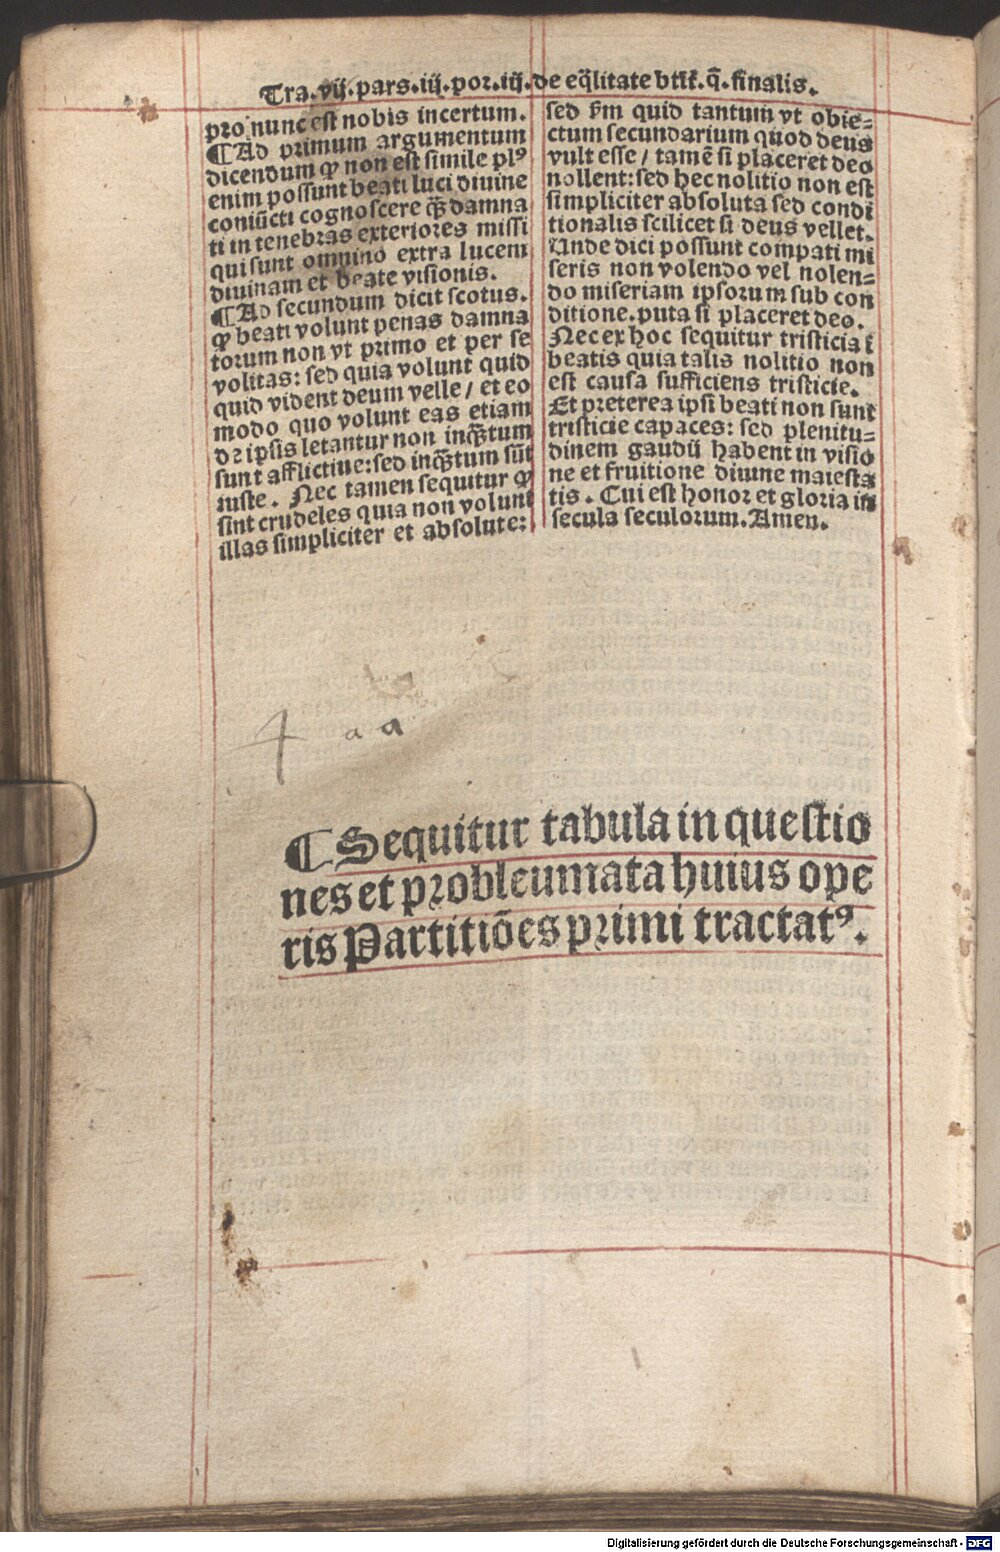 Tra.vij.pars.iij.por.iij.de eq̄litate btĩt.q̄.finalis.
pro nunc est nobis incertum.
¶Ad primum argumentum
dicendum ꝙ non est simile plꝰ
enim possunt beati luci diuine
coniūcti cognoscere qꝫ̄ damna
ti in tenebras exteriores missi
qui sunt omnino extra lucem
diuinam et beate visionis.
¶Ad secundum dicit scotus.
ꝙ beati volunt penas damna
torum non vt primo et per se
volitas: sed quia volunt quid
quid vident deum velle / et eo
modo quo volunt eas etiam
de ipsis letantur non inqꝫ̄tum
sunt afflictiue: sed inqꝫ̄tum sūt
iuste. Nec tamen sequitur ꝙ
sint crudeles quia non volunt
illas simpliciter et absolute:
sed s̄m quid tantum vt obie=
ctum secundarium quod deus
vult esse / tamē si placeret deo
nollent: sed hec nolitio non est
simpliciter absoluta sed condi
tionalis scilicet si deus vellet.
Unde dici possunt compati mi
seris non volendo vel nolen=
do miseriam ipsorum sub con
ditione. puta si placeret deo.
Nec ex hoc sequitur tristicia ī
beatis quia talis nolitio non
est causa sufficiens tristicie.
Et preterea ipsi beati non sunt
tristicie capaces: sed plenitu=
dinem gaudii habent in visio
ne et fruitione diuine maiesta
tis. Cui est honor et gloria in
secula seculorum. Amen.
4 a a
¶Sequitur tabula in questio
nes et probleumata huius ope
ris Partitiōes primi tractatꝰ.
Digitalisierung gefördert durch die Deutsche Forschungsgemeinschaft - DFG